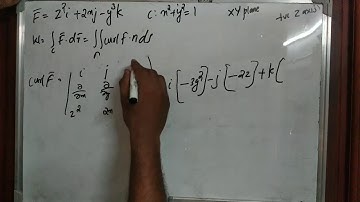 F̄ = z²i + 2xj - y³k   C: x²+y²=1   XY plane   +ve z axis
W = ∫_C F̄·dr̄ = ∬_n curl F̄·n ds
curl F̄ = | i   j
∂/∂x   ∂/∂y
z²   2x | i[-3y²] - j[-2z] + k(